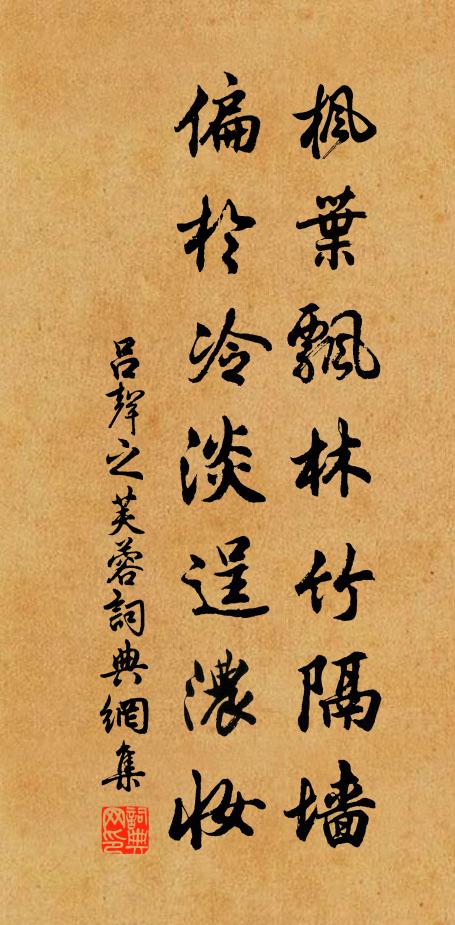 楓葉飄林竹隔墙
偏於冷淡逞濃妝
吕聲之芙蓉詞典網集
詞典網印